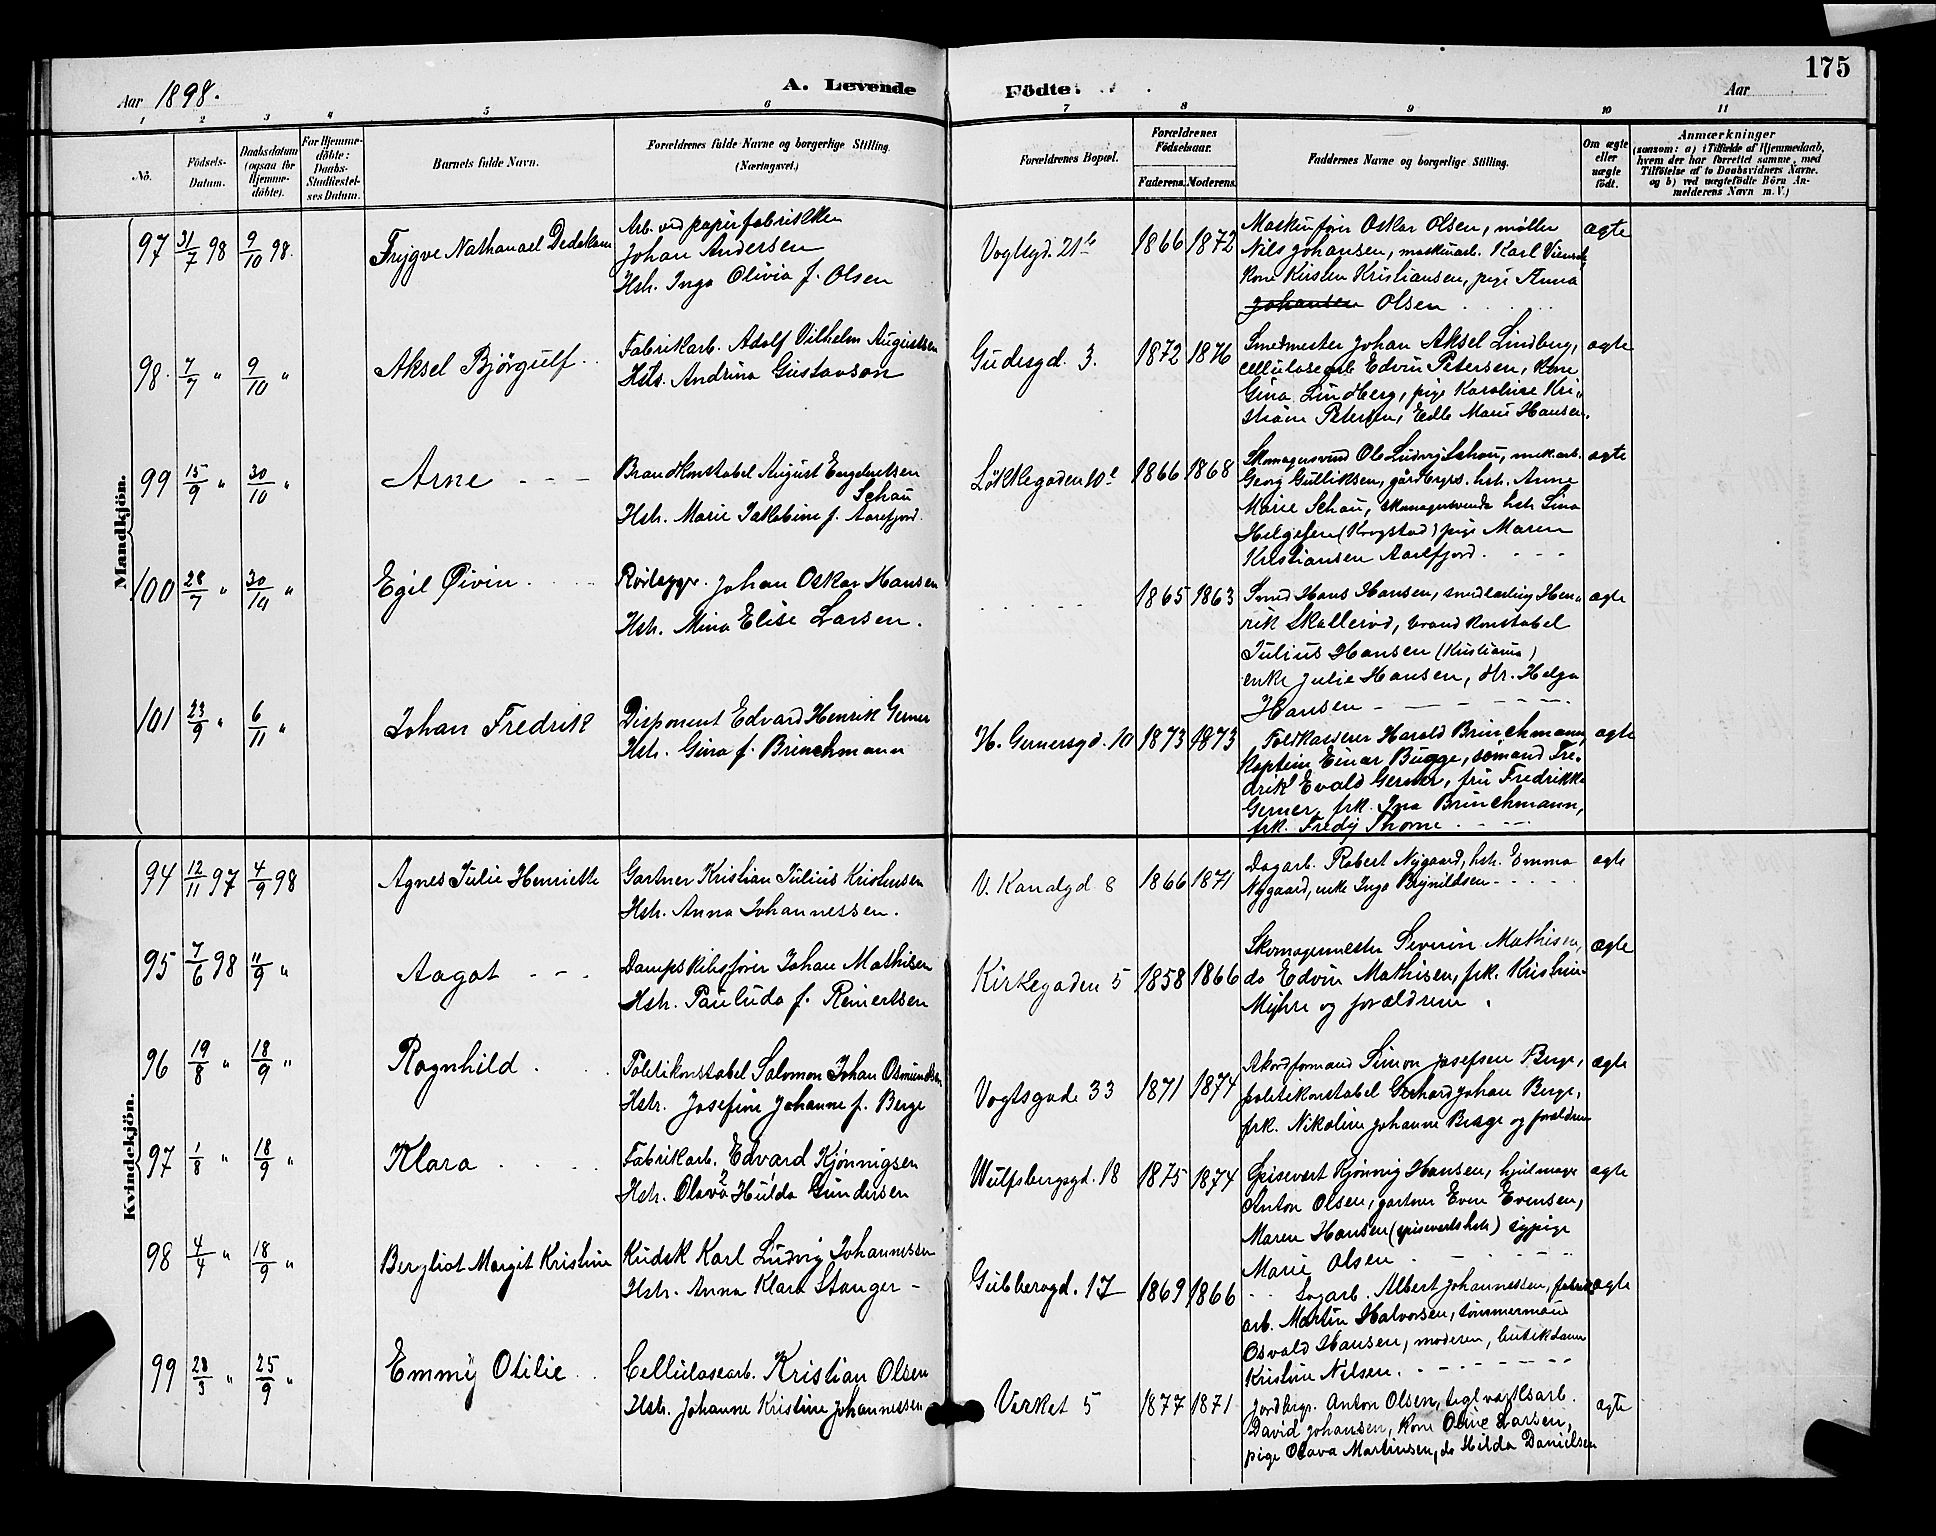 175
Aar 1898.
A. Levende
Födte.
Aar
1 2 3 4 5 6 7 8 9 10 11
No.
Födsels-Datum.
Daabsdatum (ogsaa for Hjemmedöbte).
For Hjemmedöbte: Daabs-Stadfæstelses Datum.
Barnets fulde Navn.
Forældrenes fulde Navne og borgerlige Stilling. (Næringsvei.)
Forældrenes Bopæl.
Forældrenes Födselsaar.
Faderens. Moderens.
Faddernes Navne og borgerlige Stilling.
Om ægte eller uægte født.
Anmærkninger
(saasom: a) i Tilfælde af Hjemmedaab, hvem der har forrettet samme, med Tilföielse af to Daabsvidners Navne, og b) ved uægtefödte Börn Anmelderens Navn m. V.)
Mandkjön.
97 31/7 98 9/10 98. Trygve Nathanael Dedekam
Arb. ved papirfabrikken
Johan Andersen
Hstr. Inga Olivia f. Olsen
Vogtsgd. 21b 1866 1872
Maskinfører Oskar Olsen, møller
Nils Johansen, maskinarb. Karl
Kone Kirsten Kristiansen, pige Anna
Johansen Olsen
ægte
98. 7/7 " 9/10 " Aksel Bjørgulf
Fabrikarb. Adolf Vilhelm Augustsen
Hstr. Andrina Gustavson
Gudesgd. 3. 1872 1876
Smedmester Johan Aksel Lindberg,
cellulosearb Edvin Petersen, Kone
Gina Lindberg, pige Karoline Kri-
stiane Petersen, Edle Marie Hansen.
ægte
99 15/9 " 30/10 " Arne
Brandkonstabel August Engebretsen
Schau
Hstr. Marie Jakobine f. Aarefjord.
Løkkegaden 10c 1866 1868
Skomagersvend Ole Ludvig Schau, mek.arb.
Georg Gulliksen, gårdbrgs. hstr. Anne
Marie Schau, skomagersvends hstr Lina
Helgesen (Krogstad) pige Maren
Kristiansen Aarefjord.
ægte
100 28/7 " 30/10 " Egil Øivin
Rørlægger Johan Oskar Hansen
Hstr. Mina Elise Larsen.
1865 1863
Smed Hans Hansen, smedlærling Hen-
rik Skallerød, brandkonstabel
Julius Hansen (Kristiania)
enke Julie Hansen, dtr. Helga
Hansen
ægte
101 23/9 " 6/11 " Johan Fredrik
Disponent Edvard Henrik Gerner
Hstr. Gina f. Brinchmann
H. Gernersgd. 10 1873 1873
Toldkasserer Harald Brinchmann,
Kaptein Einar Bugge, sømand Fre-
drik Evald Gerner, fru Fredrikke
Gerner, frk. Ina Brinchmann,
frk. Fredy Thorne
ægte
Kvindekjön.
94 12/11 97 4/9 98 Agnes Julie Henriette
Gartner Kristian Julius Kristensen
Hstr. Anna Johannessen.
V. Kanalgd 8 1866 1871
Dagarb. Robert Nygaard, hstr. Emma
Nygaard, enke Inga Brynildsen
ægte
95 7/6 98 11/9 " Aagot
Dampskibsfører Johan Mathisen
Hstr. Paulida f. Reinertsen
Kirkegaden 5 1858 1866
Skomagermester Severin Mathisen,
do Edvin Mathisen, frk. Kristine
Myhre og forældrene.
ægte
96 19/8 " 18/9 " Ragnhild
Politikonstabel Salomon Johan Osmundsen
Hstr. Josefine Johanne f. Berge
Vogtsgade 33 1871 1874
Akordformand Simon Josefsen Berge,
politikonstabel Gerhard Johan Berge,
frk. Nikoline Johanne Berge og forældrene
ægte
97 1/8 " 18/9 " Klara
Fabrikarb. Edvard Kjønnigsen
Hstr. Olava Hulda Gundersen
Wulfsbergsgd. 18 1875 1874
Spisevert Kjønnig Hansen, hjulmager
Anton Olsen, gartner Even Evensen,
Maren Hansen (spisevertshstr) sypige
Marie Olsen
ægte
98 4/4 " 18/9 " Bergliot Margit Kristine
Kudsk Karl Ludvig Johannessen
Hstr. Anna Klara Stanger
Gubberogd. 17 1869 1866
Sagarb. Albert Johannessen,
arb. Martin Halvorsen, tømmermand
Osvald Hansen, moderen, butikdame
Kristine Nilsen.
ægte
99 23/3 " 25/9 " Emmy Otilie
Cellulosearb. Kristian Olsen
Hstr. Johanne Kristine Johannessen
Verket 5 1877 1871
Jordbrgs. Anton Olsen, teglværksarb.
David Johansen, Kone Oline Larsen,
pige Olava Martinsen, do Hilda Danielsen
ægte